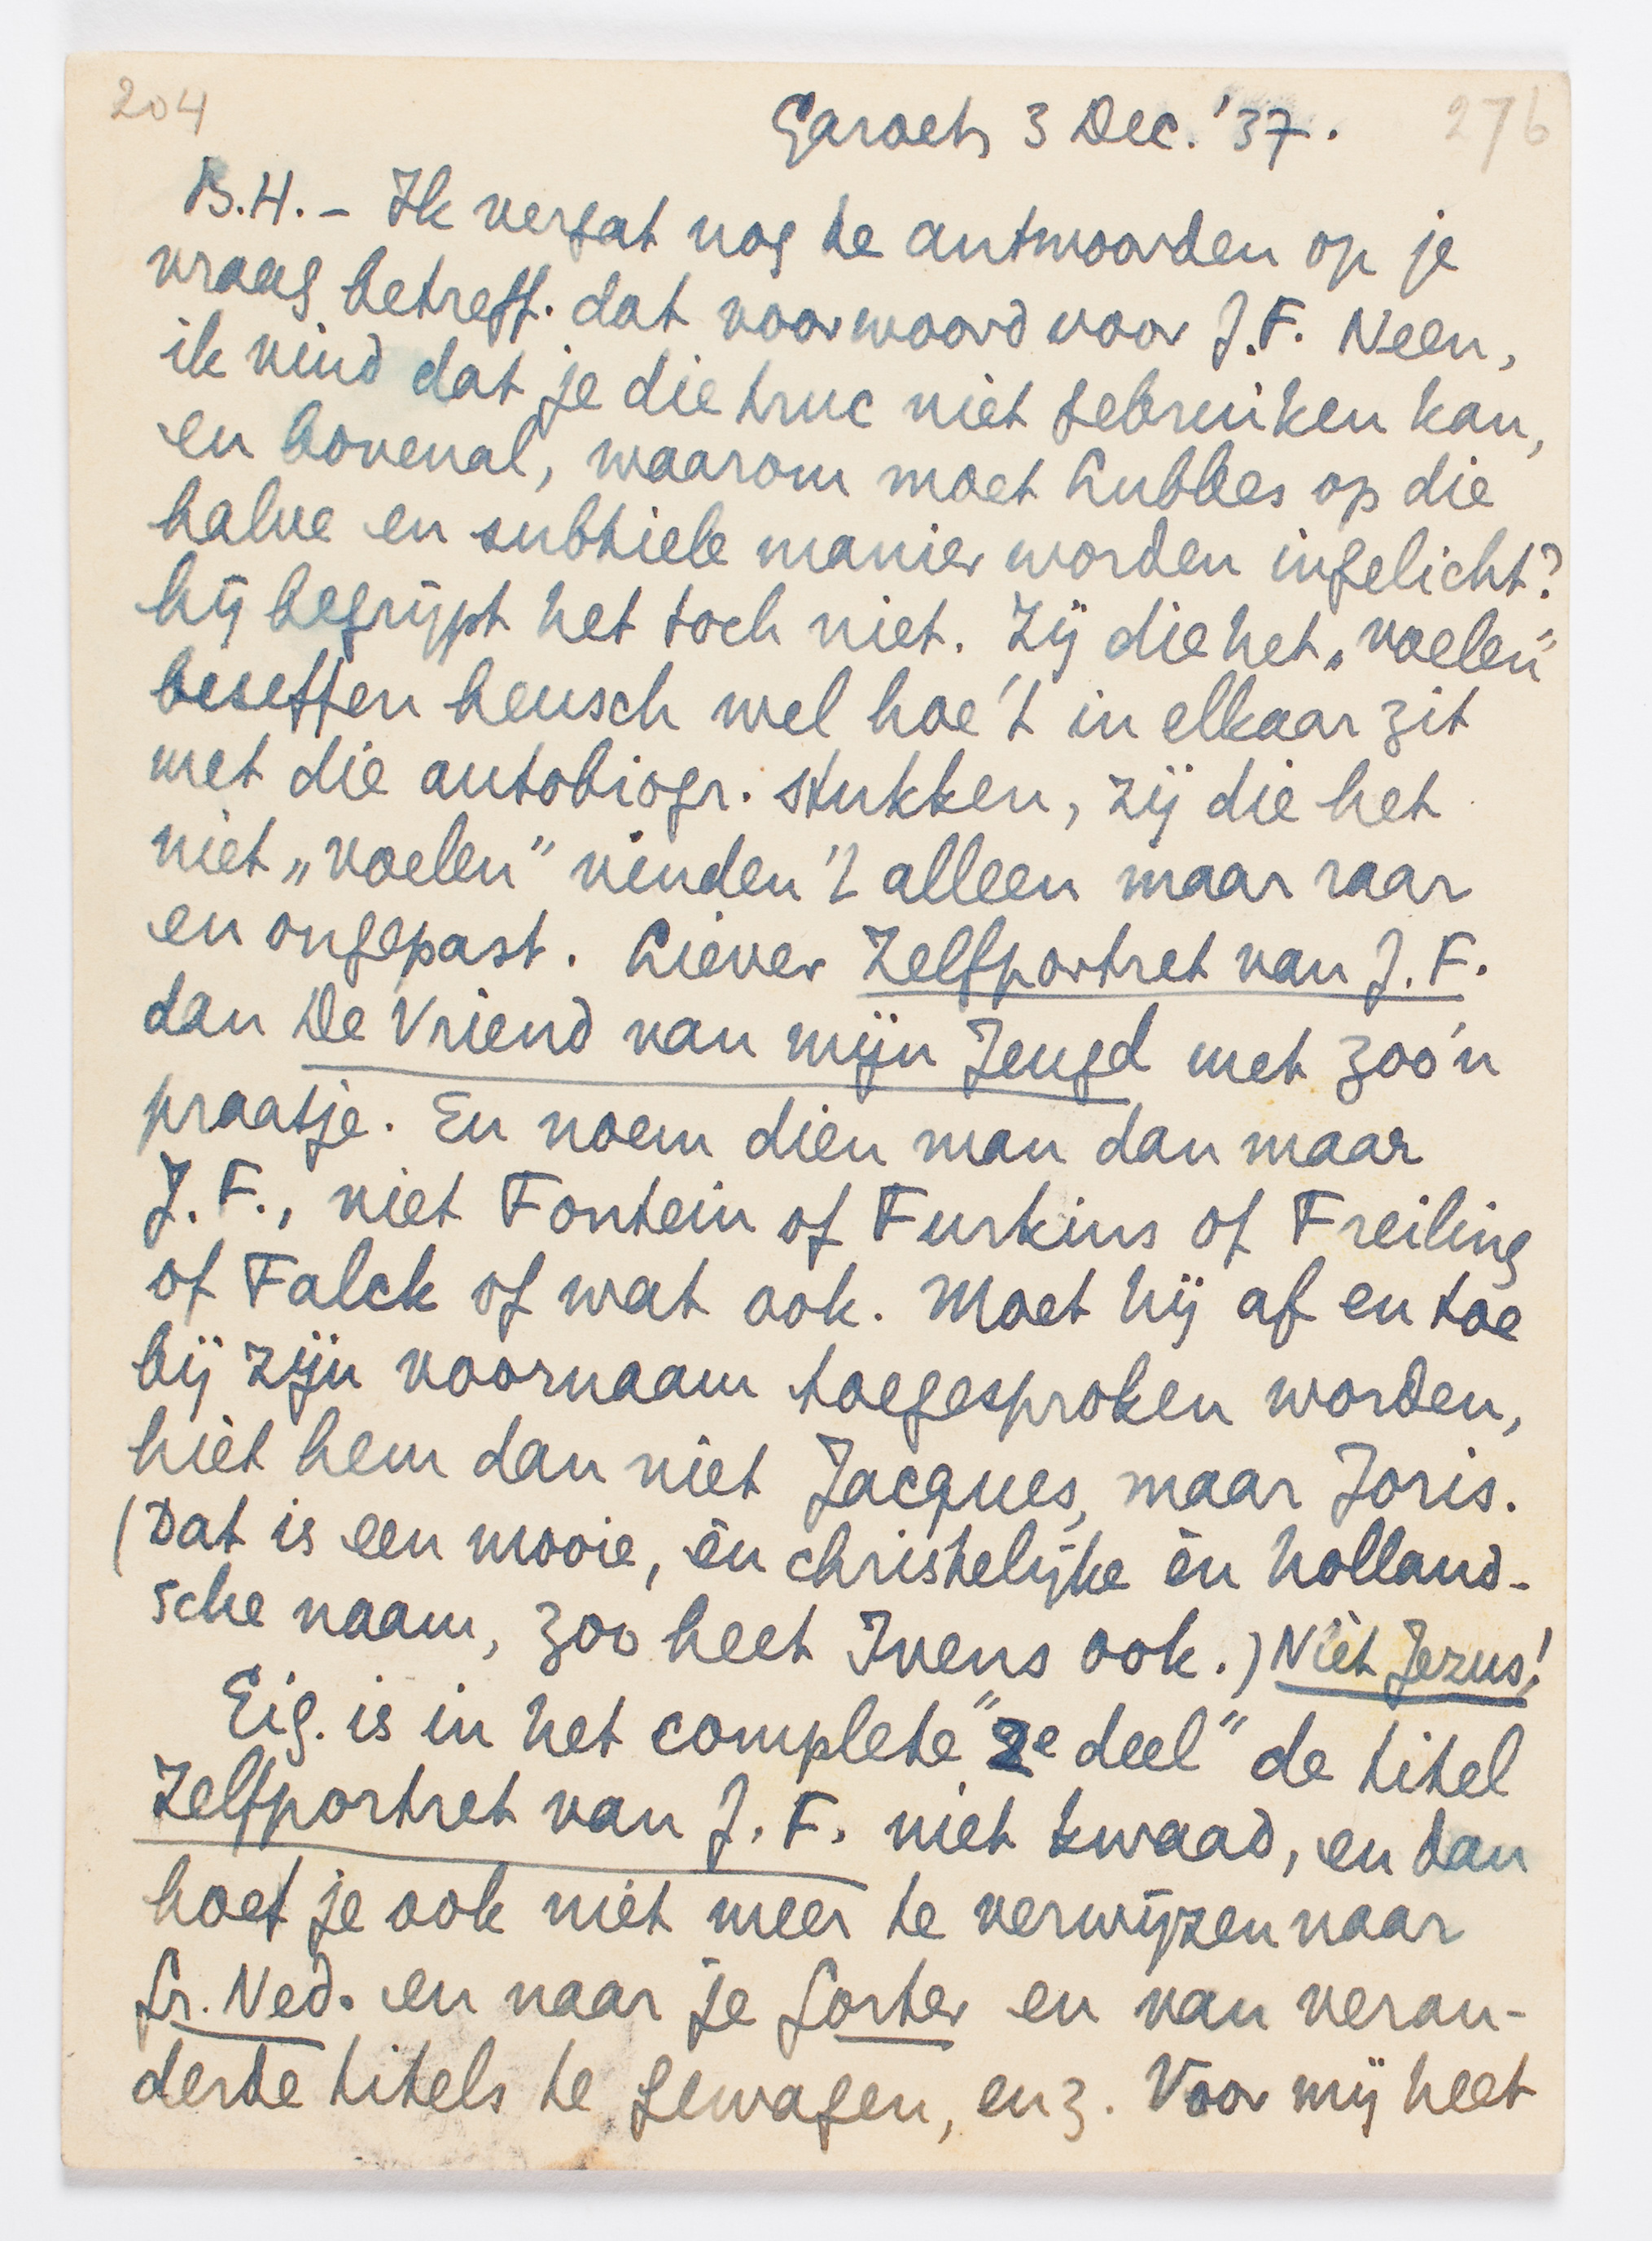 204
276
Garoet, 3 Dec. '37.
B.H. - Ik vergat nog te antwoorden op je
vraag betreff. dat voorwoord voor J.F. Neen,
ik vind dat je die truc niet gebruiken kan,
en bovenal, waarom moet Lubbes op die
halve en subtiele manier worden ingelicht?
hij begrijpt het toch niet. Zij die het „voelen”
beseffen heusch wel hoe 't in elkaar zit
met die autobiogr. stukken, zij die het
niet „voelen” vinden 't alleen maar raar
en ongepast. Liever Zelfportret van J.F.
dan De Vriend van mijn Jeugd met zoo'n
praatje. En noem dien man dan maar
J.F., niet Fontein of Furkins of Freiling
of Falck of wat ook. Moet hij af en toe
bij zijn voornaam toegesproken worden,
hiet hem dan niet Jacques, maar Joris.
(Dat is een mooie, èn christelijke èn holland-
sche naam, zoo heet Ivens ook.) Niet Jezus!
Eig. is in het complete "2e deel" de titel
Zelfportret van J.F. niet kwaad, en dan
hoef je ook niet meer te verwijzen naar
Gr. Ned. en naar je Gorter en van veran-
derde titels te gewagen, enz. Voor mij heet